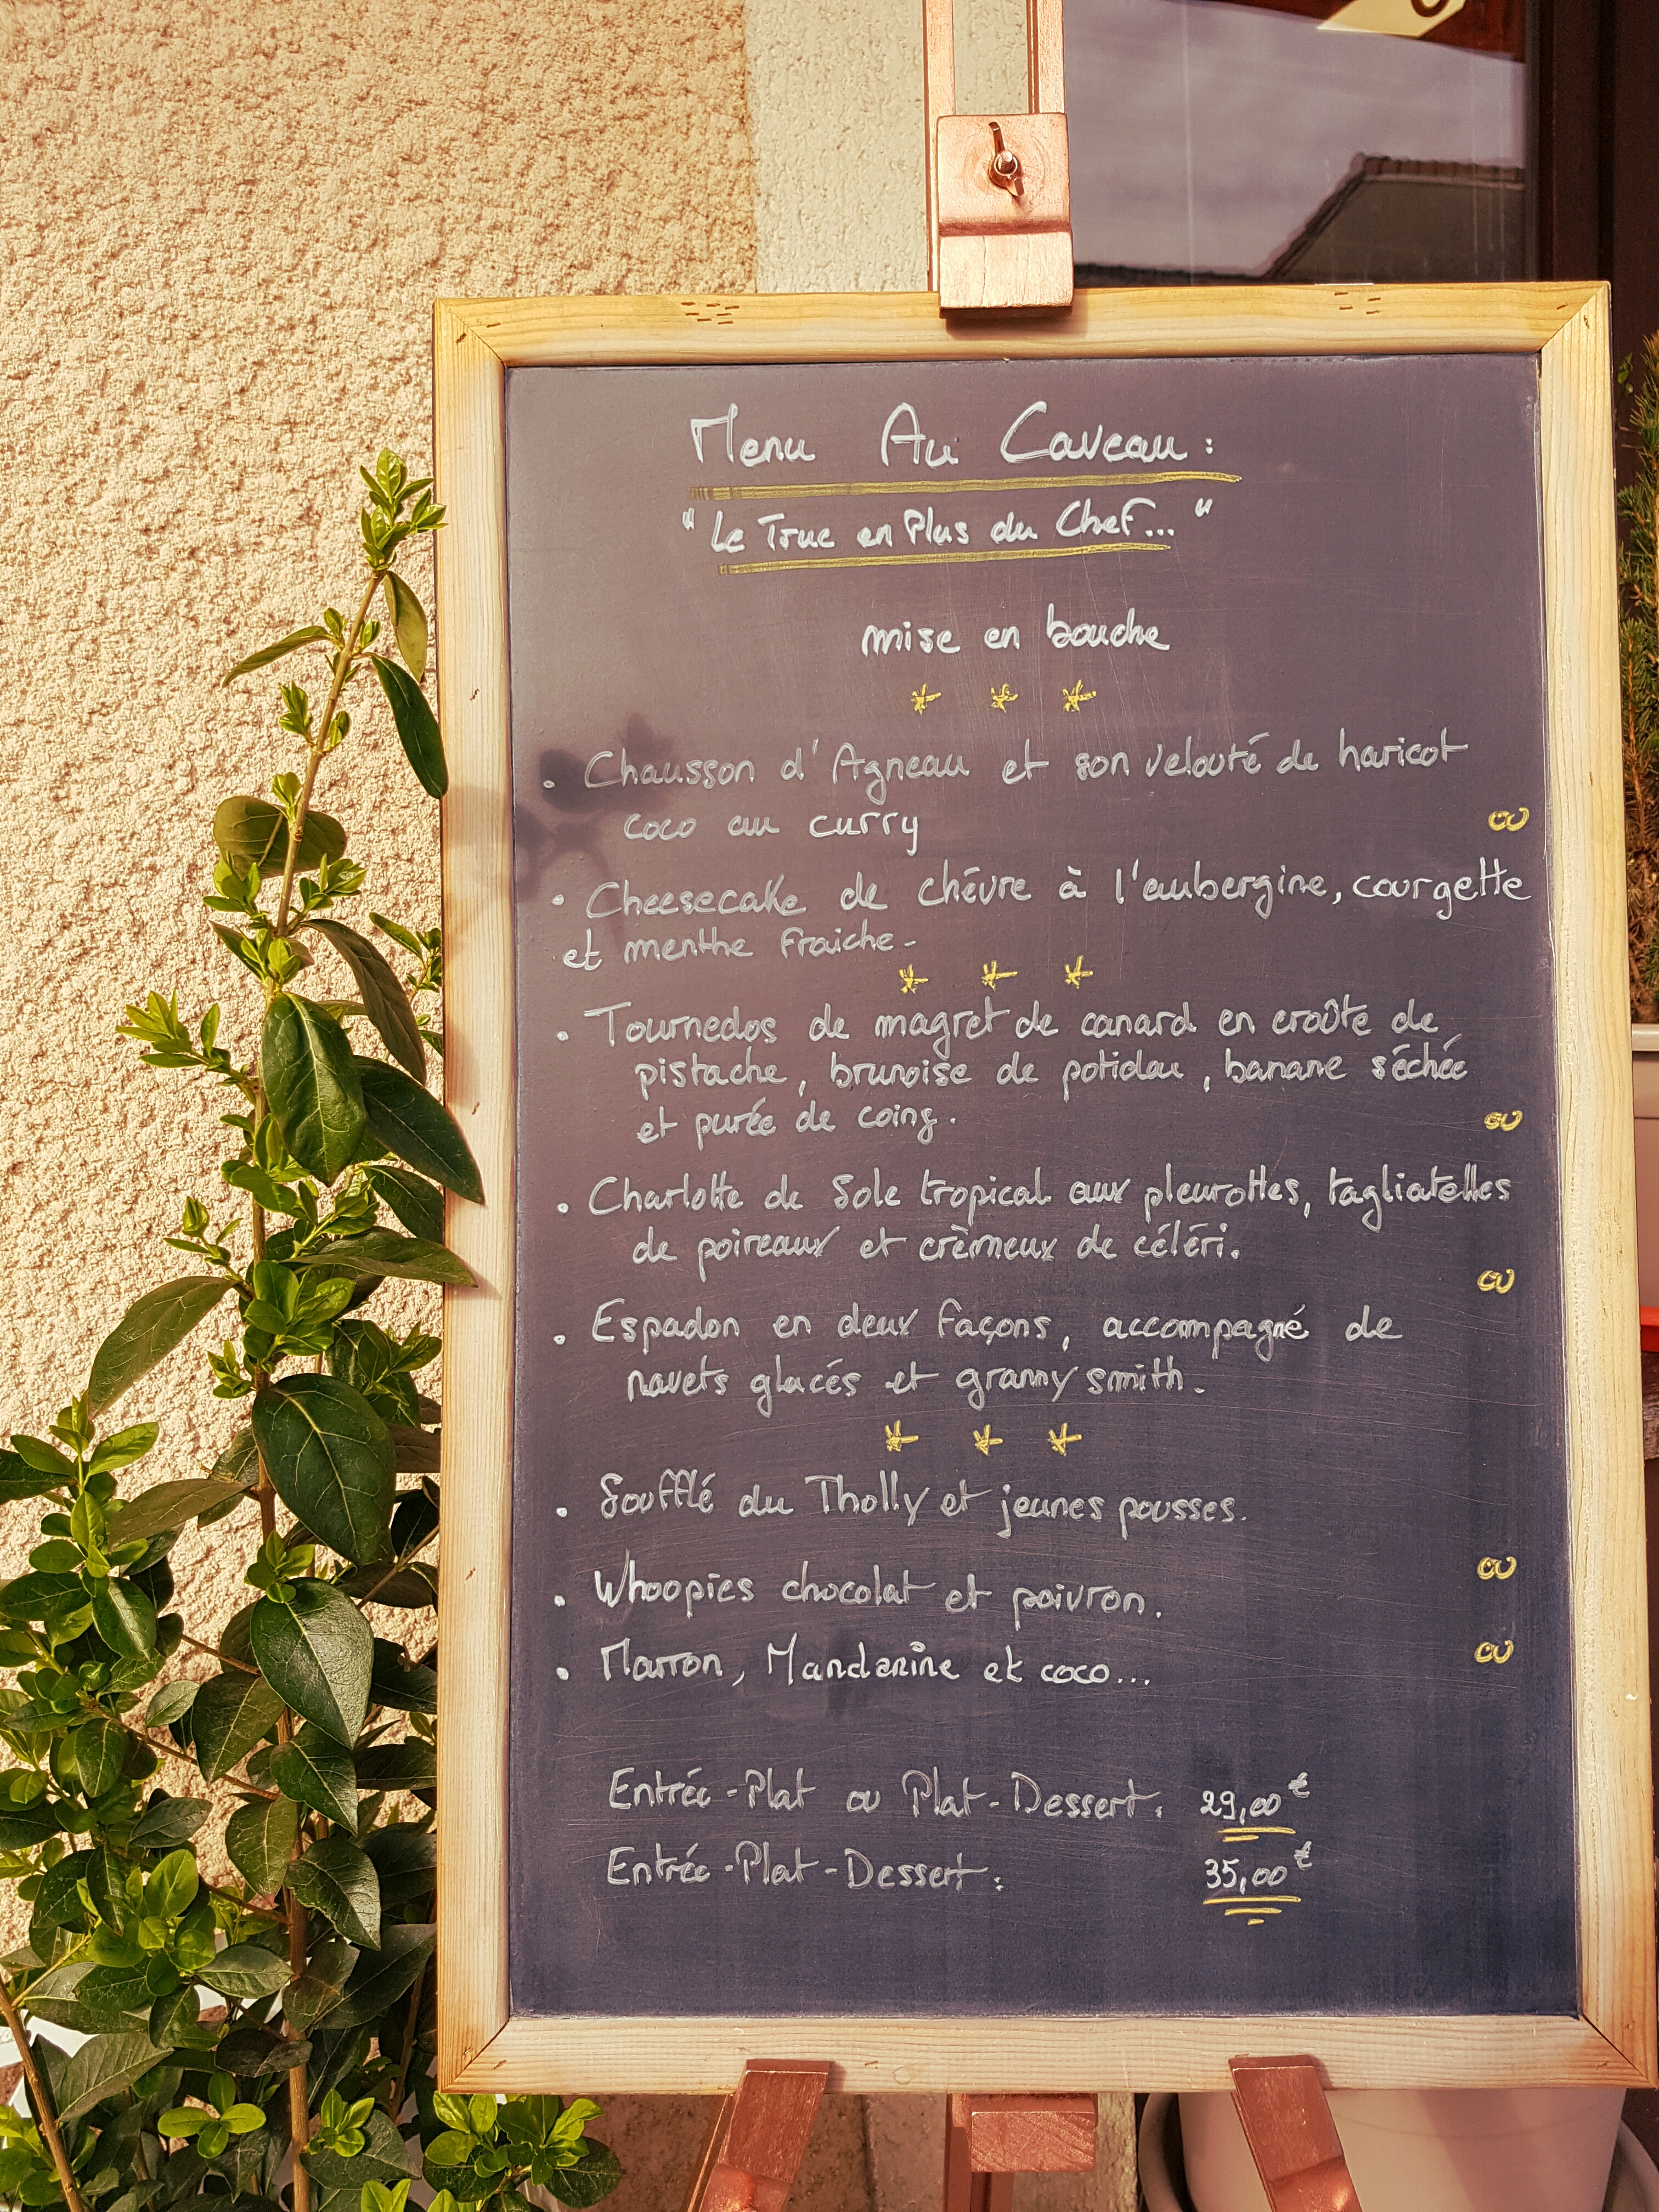 Menu Au Caveau :
"Le Truc en Plus du Chef..."
mise en bouche
. Chausson d'Agneau et son velouté de haricot
coco au curry
ou
. Cheesecake de chévre à l'aubergine, courgette
et menthe fraiche -
. Tournedos de magret de canard en croûte de
pistache, brunoise de potidou, banane séchée
et purée de coing.
ou
. Charlotte de Sole tropical aux pleurottes, tagliatelles
de poireaux et crèmeux de céléri.
ou
. Espadon en deux façons, accompagné de
navets glacés et granny smith.
. Soufflé du Tholly et jeunes pousses.
ou
. Whoopies chocolat et poivron.
ou
. Marron, Mandarine et coco...
Entrée-Plat ou Plat-Dessert : 29,00€
Entrée-Plat-Dessert : 35,00€